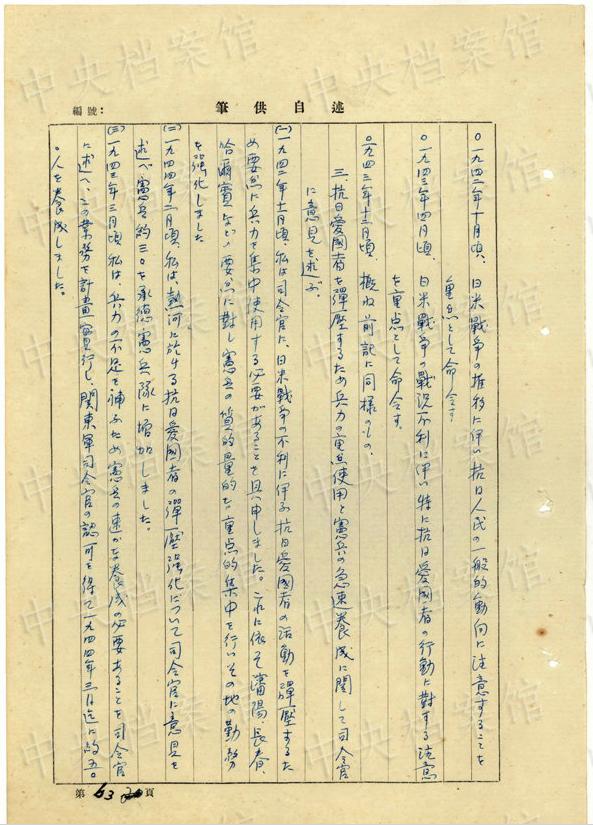 編號:
述自供筆
〇一九四二年十月頃、日米戰爭の推移に伴い抗日人民の一般的動向に注意することを
重点として命令す。
〇一九四三年四月頃、日米戰爭の戰況不利に伴い特に抗日愛國者の行動に対する注意
を重点として命令す。
〇一九四三年十二月頃、概ね前記に同様のもの。
三、抗日愛國者を彈壓するため兵力の重点使用と憲兵の急速養成に関して司令官
に意見を述ぶ。
(一)一九四二年十一月頃、私は司令官に、日米戰爭の不利に伴ふ抗日愛國者の活動を彈壓するた
め要点に兵力を集中使用する必要があることを具申しました。これに依って瀋陽、長春、
哈爾賓などの要点に対し憲兵の質的量的な重点的集中を行いその地の勤務
を强化しました
(二)一九四四年二月頃、私は、熱河に於ける抗日愛國者の彈壓强化について司令官に意見を
述べ憲兵約三〇を承德憲兵隊に増加しました。
(三)一九四三年三月頃私は、兵力の不足を補ふため憲兵の速かな養成の必要あることを司令官
に述べ、この業務を計畫實行し、関東軍司令官の認可を得て一九四四年三月迄に約五〇
〇人を養成しました。
第 63 頁